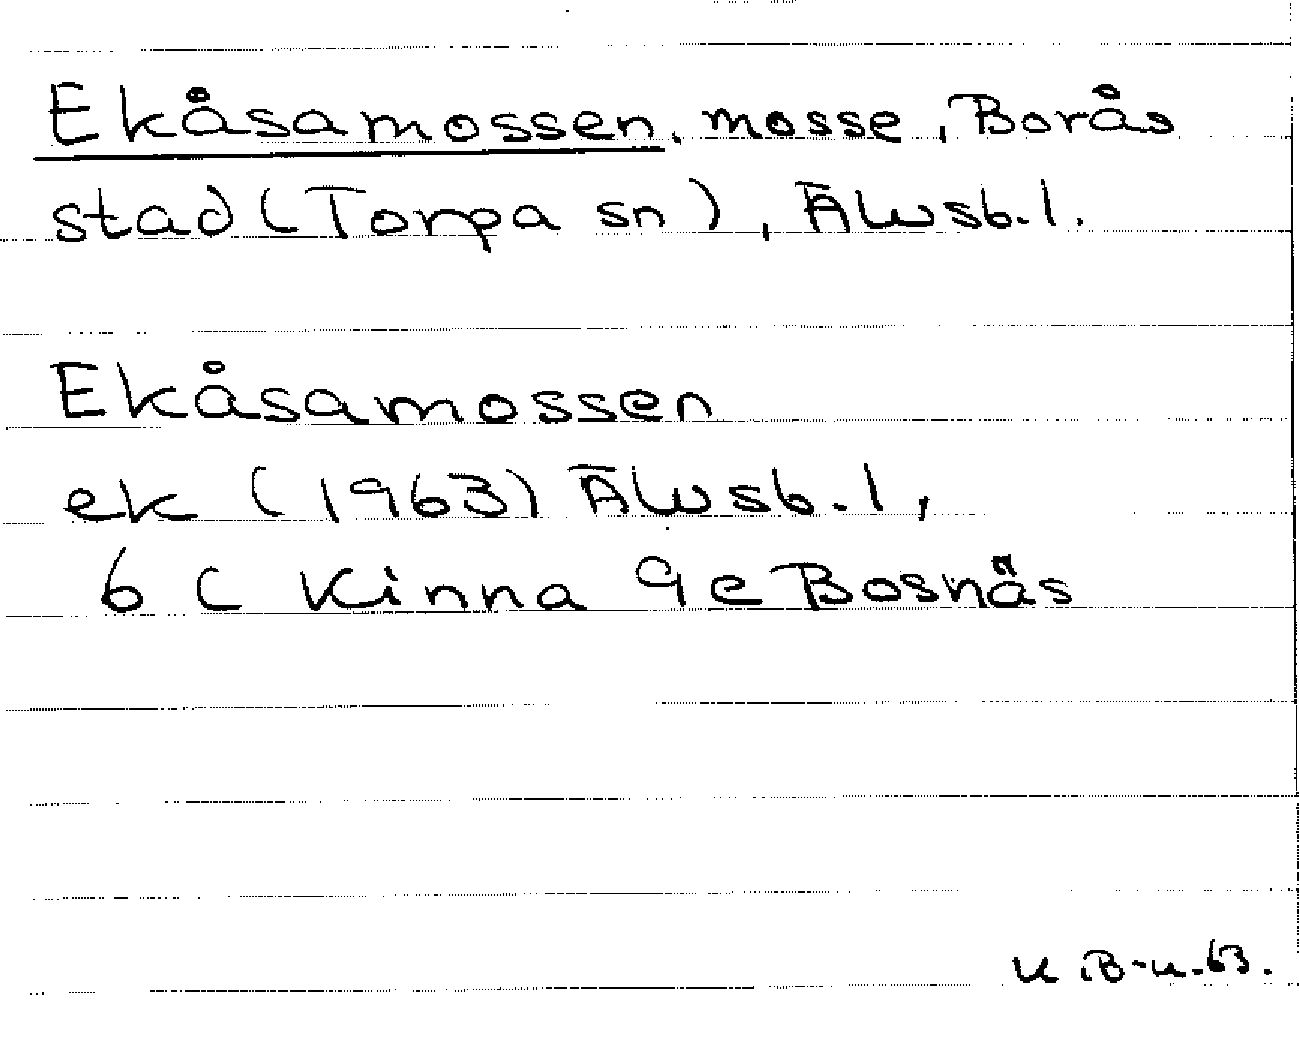 Ekåsamossen, mosse, Borås
stad (Torpa sn), Älvsb. l.
Ekåsamossen
ek (1963) Älvsb. l,
6 C Kinna 9 e Bosnäs
K B-n. 63.